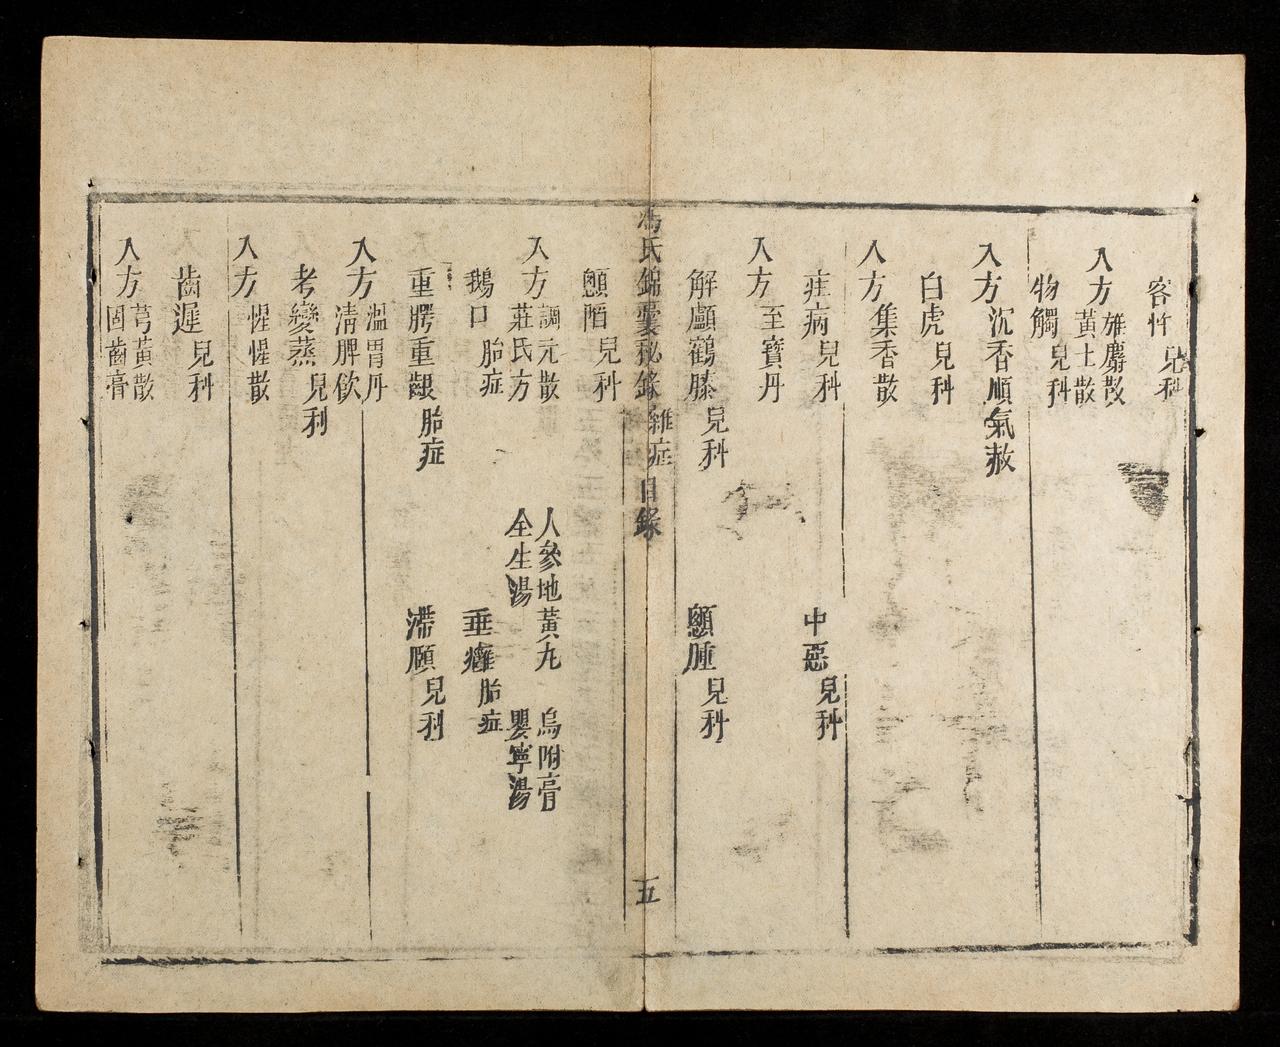 客忤 兒科
入方 雄麝散
黃土散
物觸 兒科
入方 沉香順氣散
白虎 兒科
入方 集香散
疰病 兒科 中惡 兒科
入方 至寶丹
解顱鶴膝 兒科 顖腫 兒科
馮氏錦囊秘錄 雜症 目錄 五
顖陷 兒科
入方 調元散 人參地黃丸 烏附膏
莊氏方 全生湯 嬰寧湯
鵝口 胎症 垂癰 胎症
重腭重齦 胎症 滯頤 兒科
入方 溫胃丹
清脾飲
考變蒸 兒科
入方 惺惺散
齒遲 兒科
入方 芎黃散
固齒膏